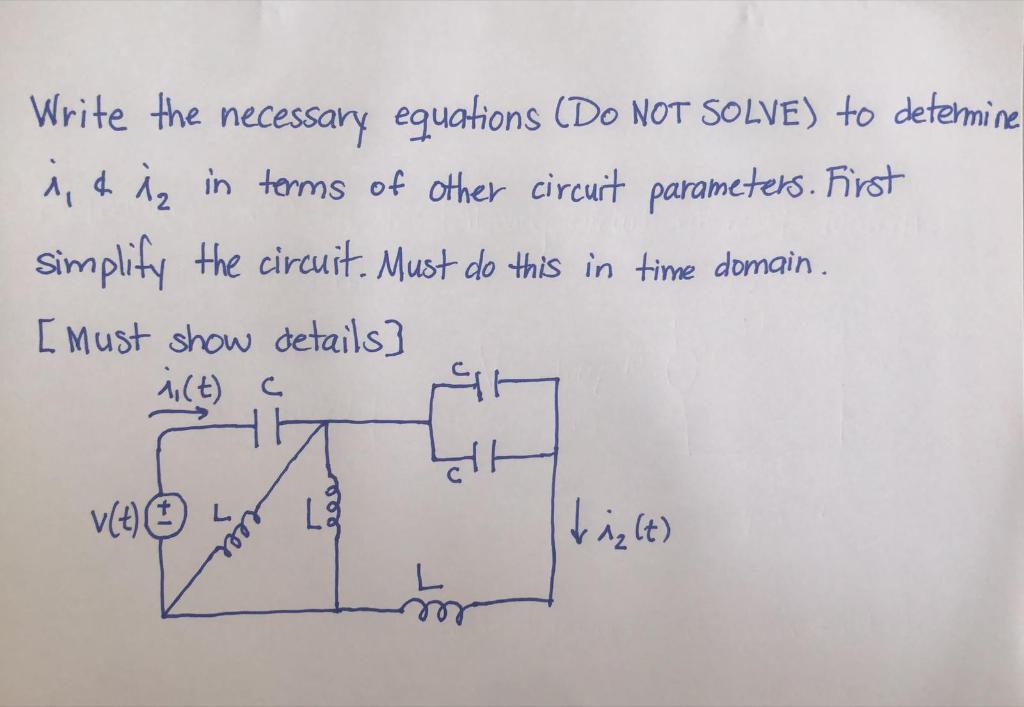 Write the necessary equations (DO NOT SOLVE) to determine
i₁ & i₂ in terms of other circuit parameters. First
simplify the circuit. Must do this in time domain.
[Must show details]
i₁(t) C
C
C
v(t) + -
L
L
↓ i₂(t)
L